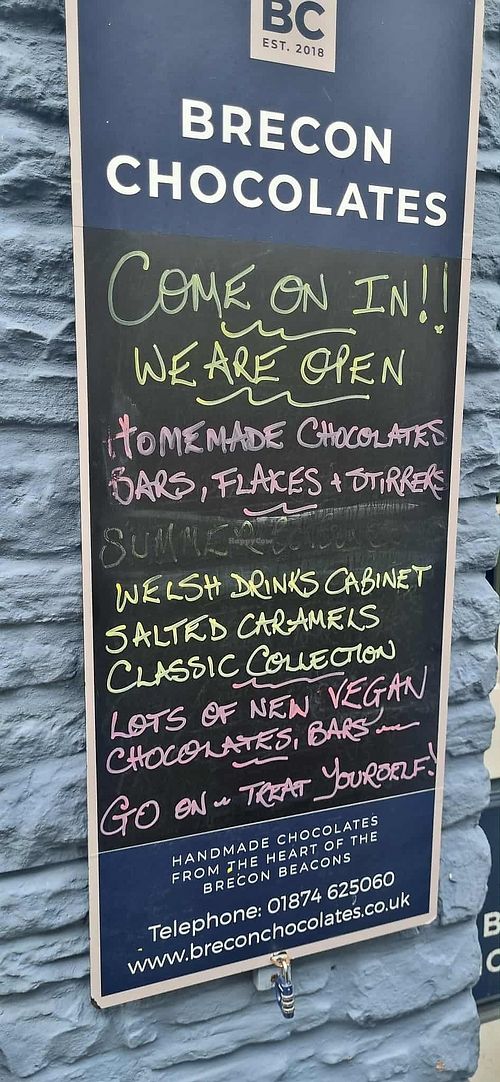 BC
EST. 2018
BRECON
CHOCOLATES
COME ON IN!!
WE ARE OPEN
HOMEMADE CHOCOLATES
BARS, FLAKES + STIRRERS
SUMMER
WELSH DRINKS CABINET
SALTED CARAMELS
CLASSIC COLLECTION
LOTS OF NEW VEGAN
CHOCOLATES, BARS
GO ON - TREAT YOURSELF!
HANDMADE CHOCOLATES
FROM THE HEART OF THE
BRECON BEACONS
Telephone: 01874 625060
www.breconchocolates.co.uk
HappyCow